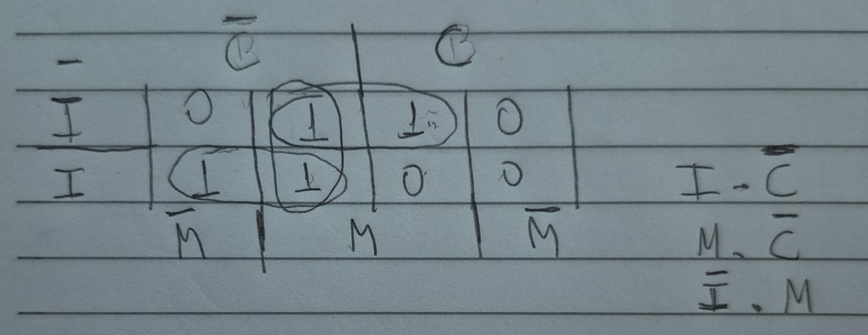 C̅ C
I̅ 0 1 1 0
I 1 1 0 0
M̅ M M̅
I . C̅
M . C̅
I̅ . M